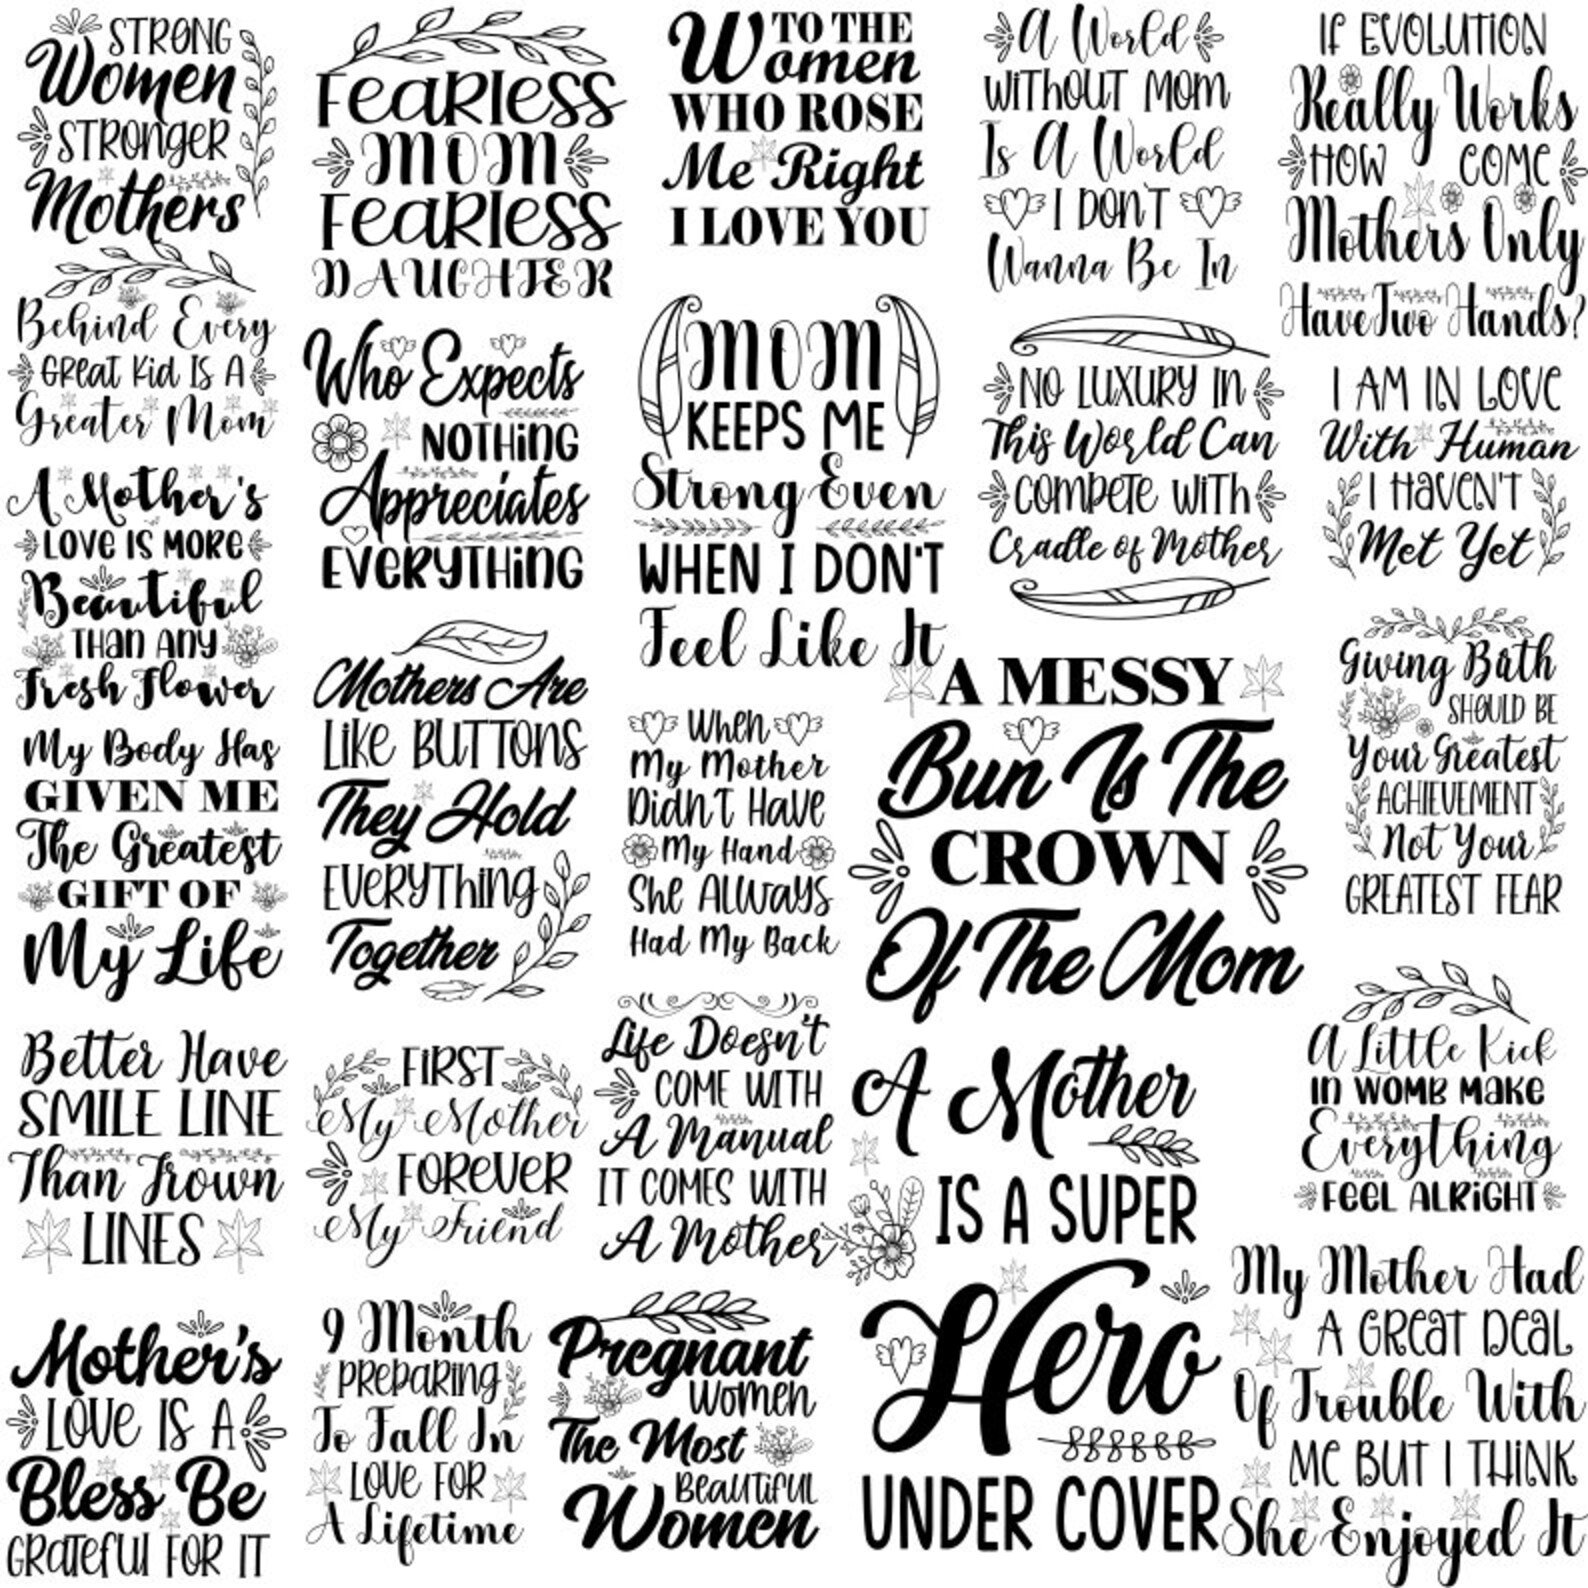 STRONG
Women
STRONGER
Mothers
Behind Every
GREAT Kid IS A
Greater Mom
A Mother's
LOVE IS MORE
Beautiful
THAN ANY
Fresh Flower
My Body Has
GIVEN ME
The Greatest
GIFT OF
My Life
Better Have
SMILE LINE
Than Frown
LINES
Mother's
LOVE IS A
Bless Be
GRATEFUL FOR IT
Fearless
MOM
Fearless
DAUGHTER
Who Expects
NOTHING
Appreciates
EVERYTHING
Mothers Are
LIKE BUTTONS
They Hold
EVERYTHING
Together
FIRST
My Mother
FOREVER
My Friend
9 Month
PREPARING
To Fall In
LOVE FOR
A Lifetime
TO THE
Women
WHO ROSE
Me Right
I LOVE YOU
MOM
KEEPS ME
Strong Even
WHEN I DON'T
Feel Like It
When
My Mother
Didn't Have
My Hand
She Always
Had My Back
Life Doesn't
COME WITH
A Manual
IT COMES WITH
A Mother
Pregnant
Women
The Most
BEAUTIFUL
Women
A World
WITHOUT MOM
Is A World
I DON'T
Wanna Be In
NO LUXURY IN
This World Can
COMPETE WITH
Cradle of Mother
A MESSY
Bun Is The
CROWN
Of The Mom
A Mother
IS A SUPER
Hero
UNDER COVER
IF EVOLUTION
Really Works
HOW COME
Mothers Only
Have Two Hands?
I AM IN LOVE
With Human
I HAVEN'T
Met Yet
Giving Birth
SHOULD BE
Your Greatest
ACHIEVEMENT
Not Your
GREATEST FEAR
A Little Kick
IN WOMB MAKE
Everything
FEEL ALRIGHT
My Mother Had
A GREAT DEAL
Of Trouble With
ME BUT I THINK
She Enjoyed It